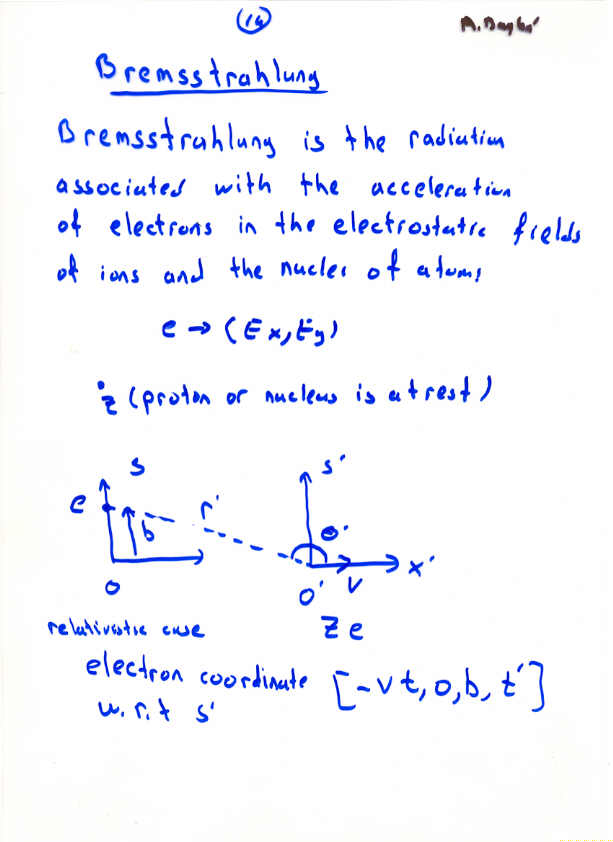 (14)
Bremsstrahlung
Bremsstrahlung is the radiation
associated with the acceleration
of electrons in the electrostatic fields
of ions and the nuclei of atoms
e → (Ex, Ey)
z (proton or nucleus is at rest)
s s'
e b r' θ'
o o' v x'
relativistic case Ze
electron coordinate [-vt, 0, b, t']
w.r.t s'